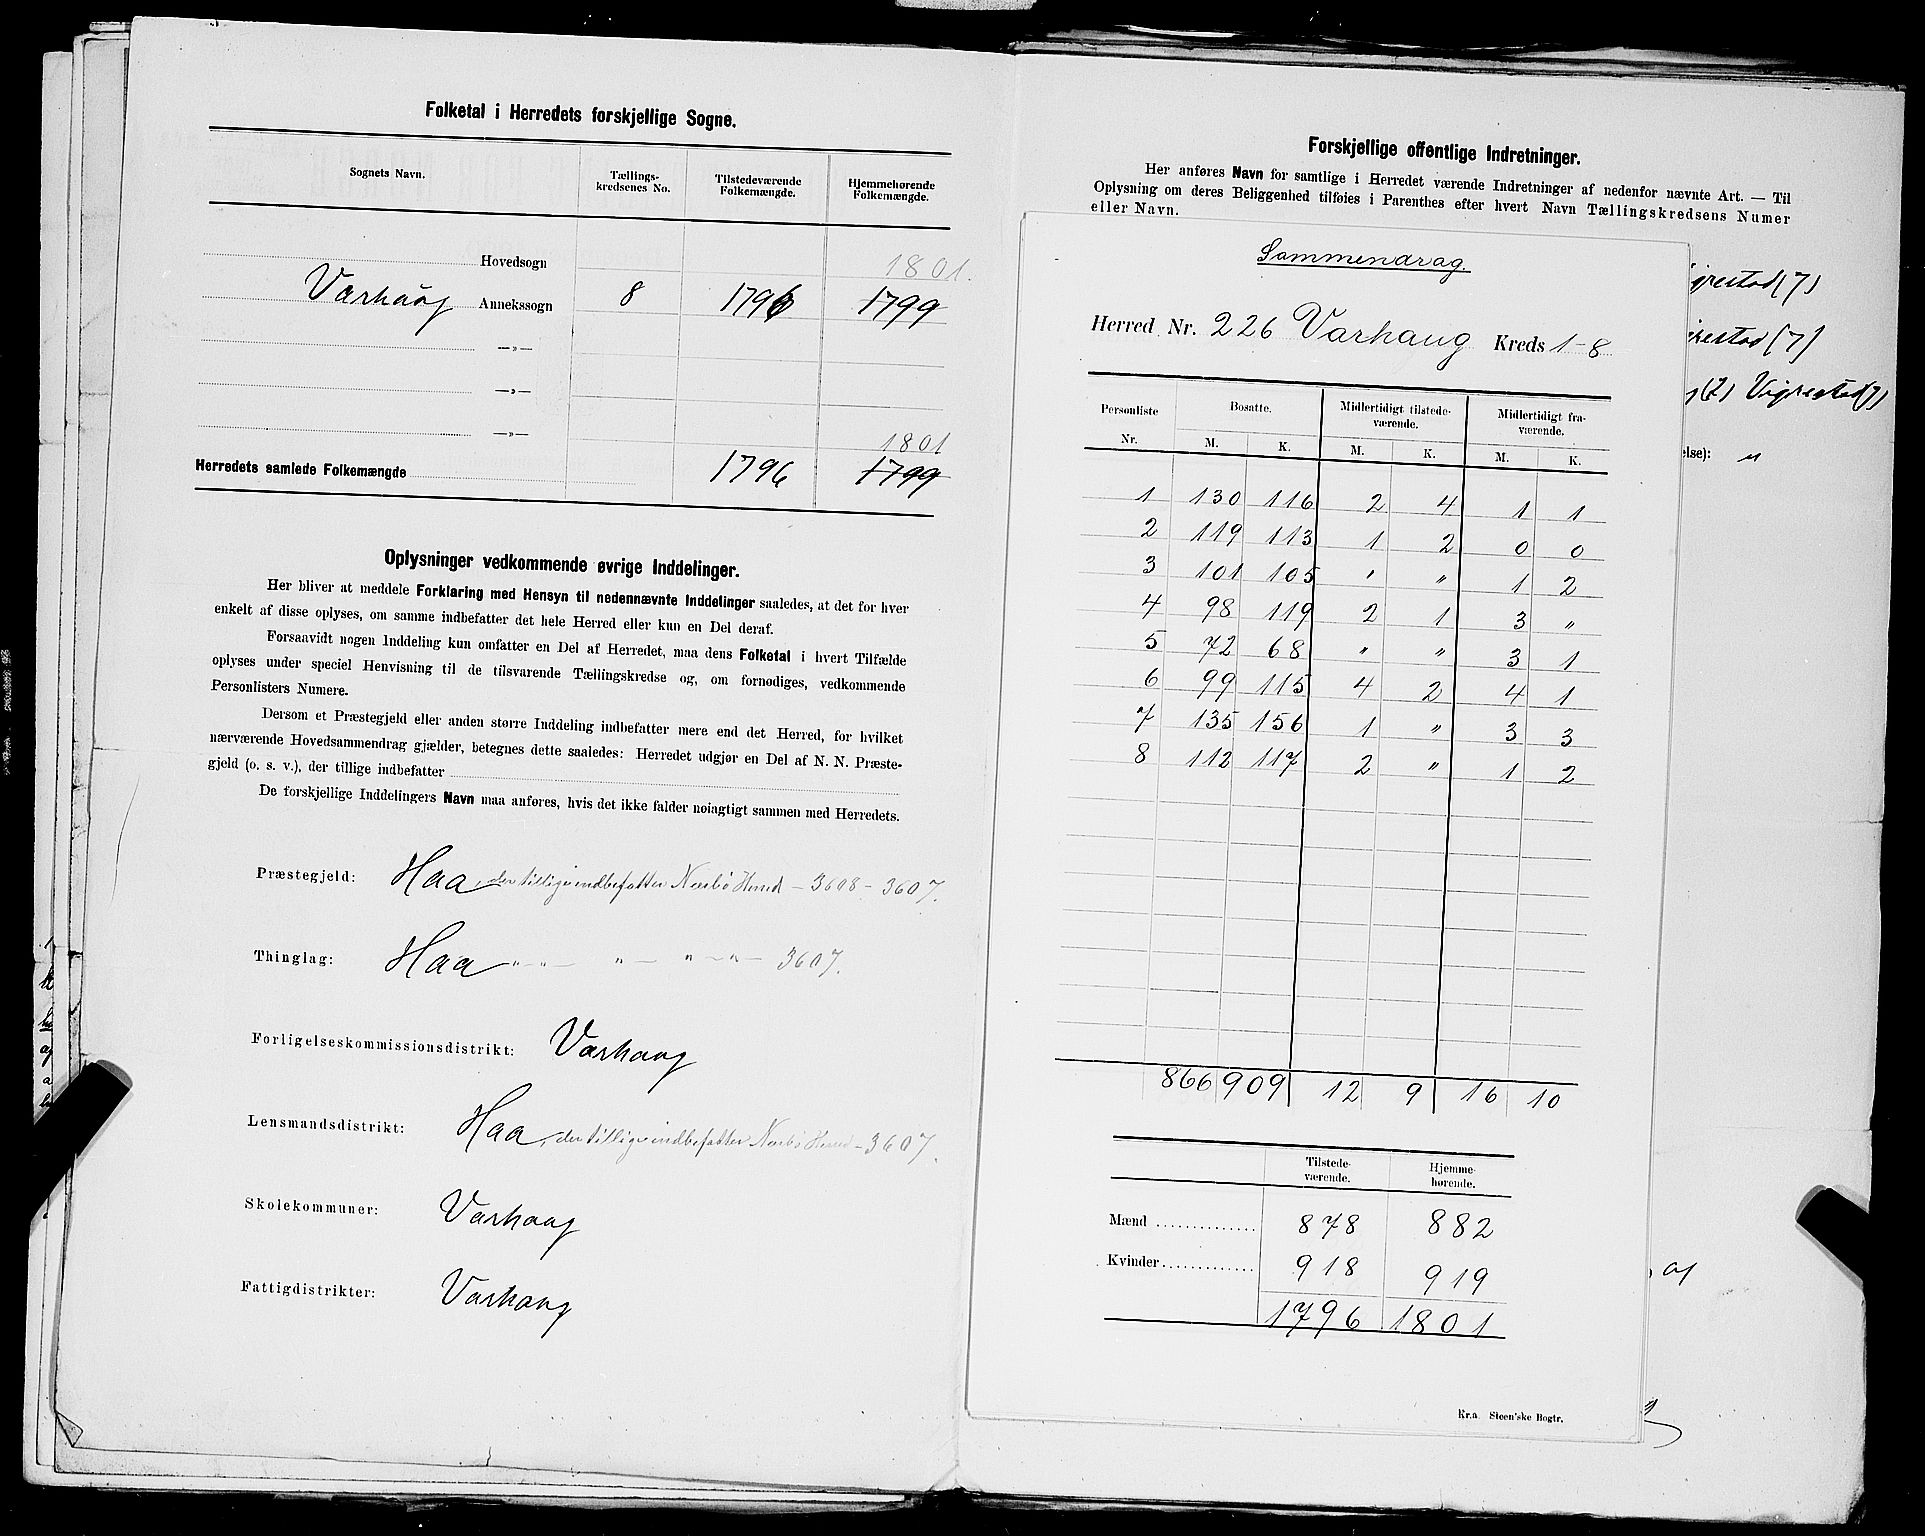 Folketal i Herredets forskjellige Sogne.
Sognets Navn. Tællings-kredsenes No. Tilstedeværende Folkemængde. Hjemmehørende Folkemængde.
Hovedsogn 1801.
Varhaug Annekssogn 8 1796 1799
—„—
—„—
—„— 1801
Herredets samlede Folkemængde 1796 1799
Oplysninger vedkommende øvrige Inddelinger.
Her bliver at meddele Forklaring med Hensyn til nedennævnte Inddelinger saaledes, at det for hver
enkelt af disse oplyses, om samme indbefatter det hele Herred eller kun en Del deraf.
Forsaavidt nogen Inddeling kun omfatter en Del af Herredet, maa dens Folketal i hvert Tilfælde
oplyses under speciel Henvisning til de tilsvarende Tællingskredse og, om fornødiges, vedkommende
Personlisters Numere.
Dersom et Præstegjeld eller anden større Inddeling indbefatter mere end det Herred, for hvilket
nærværende Hovedsammendrag gjælder, betegnes dette saaledes: Herredet udgjør en Del af N. N. Præste-
gjeld (o. s. v.), der tillige indbefatter
De forskjellige Inddelingers Navn maa anføres, hvis det ikke falder nøiagtigt sammen med Herredets.
Præstegjeld: Haa, der tillige indbefatter Nærbø Herred – 3608 – 3607.
Thinglag: Haa „ – „ – „ – „ – „ – 3607.
Forligelseskommissionsdistrikt: Varhaug
Lensmandsdistrikt: Haa, der tillige indbefatter Nærbø Herred – 3607.
Skolekommuner: Varhaug
Fattigdistrikter: Varhaug
Forskjellige offentlige Indretninger.
Her anføres Navn for samtlige i Herredet værende Indretninger af nedenfor nævnte Art. — Til
Oplysning om deres Beliggenhed tilføies i Parenthes efter hvert Navn Tællingskredsens Numer
eller Navn.
Sammendrag.
Herred Nr. 226 Varhaug Kreds 1-8
Personliste Nr. Bosatte. Midlertidigt tilstede-værende. Midlertidigt fra-værende.
M. K. M. K. M. K.
1 130 116 2 4 1 1
2 119 113 1 2 0 0
3 101 105 „ „ 1 2
4 98 119 2 1 3 „
5 72 68 „ „ 3 1
6 99 115 4 2 4 1
7 135 156 1 „ 3 3
8 112 117 2 „ 1 2
866 909 12 9 16 10
Tilstede-værende. Hjemme-hørende.
Mænd 878 882
Kvinder 918 919
1796 1801
Kr.a. Steen'ske Bogtr.
grestad (7)
restad (7)
(2) Vigrestad (7)
else): „